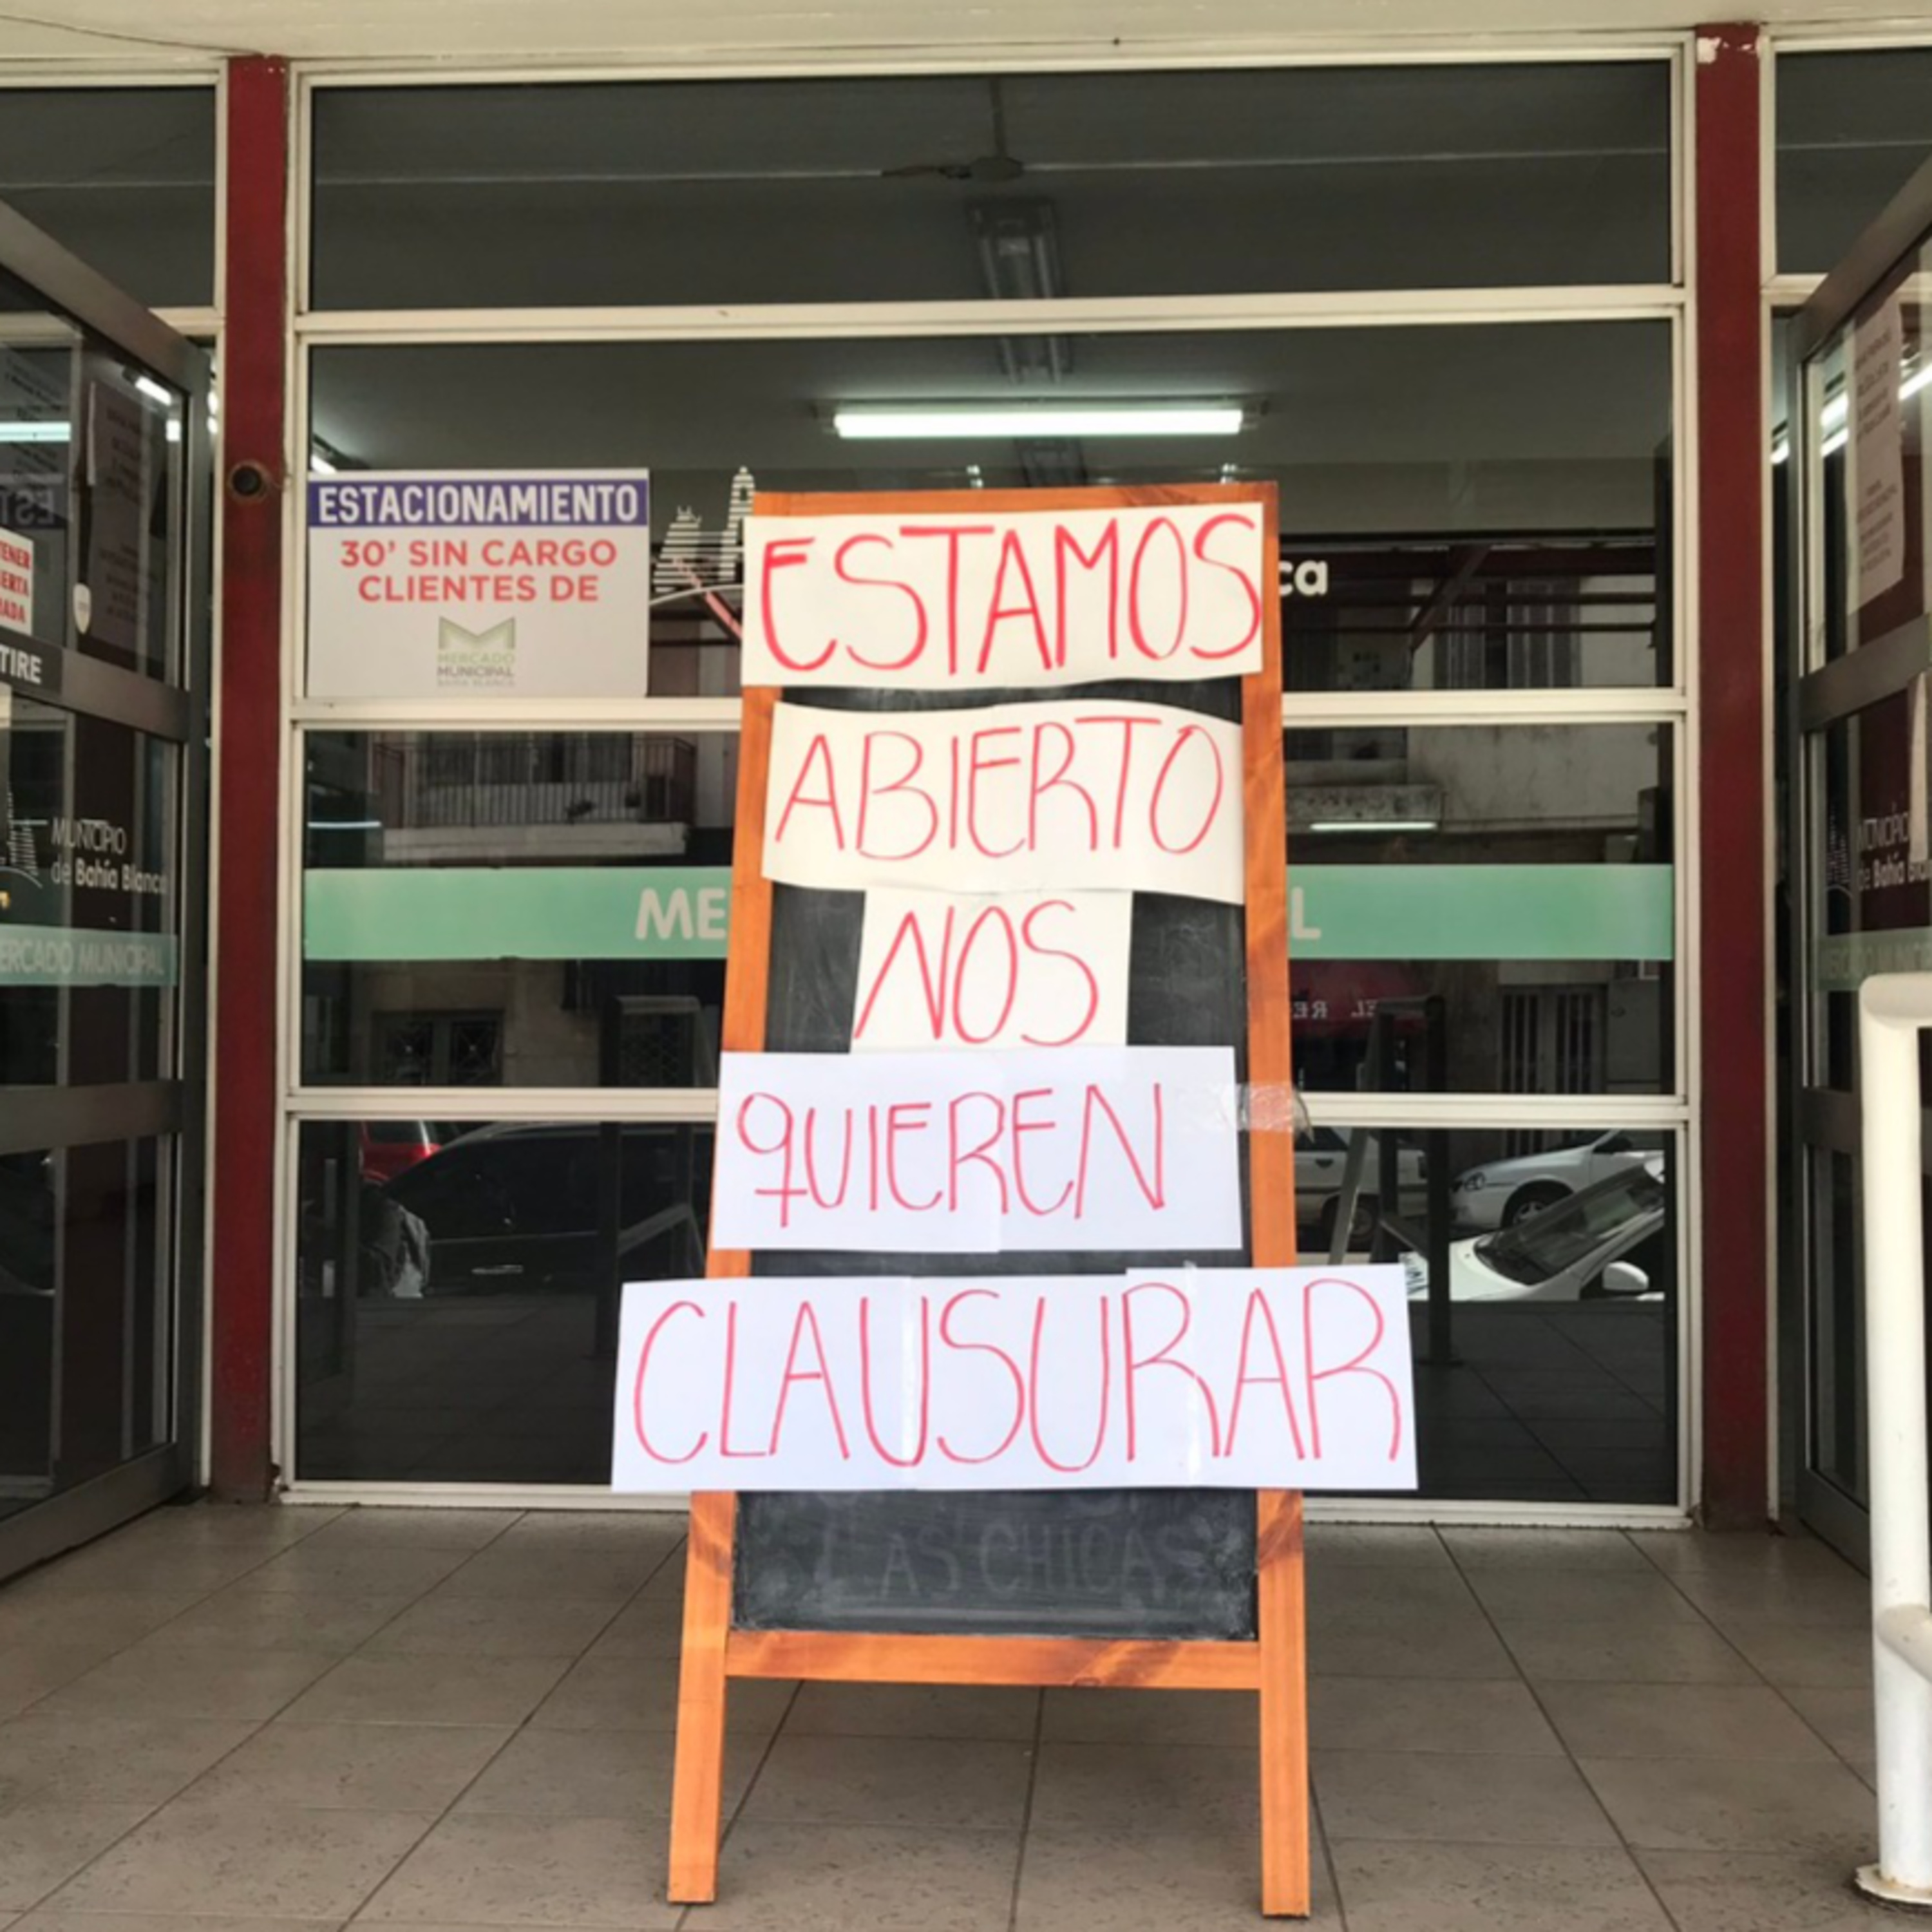 ESTACIONAMIENTO
30' SIN CARGO
CLIENTES DE
MERCADO
MUNICIPAL
BAHÍA BLANCA
ESTAMOS
ABIERTO
NOS
QUIEREN
CLAUSURAR
LAS CHICAS
ca
ME
L
TENER
ERTA
RADA
TIRE
MUNICIPIO
de Bahía Blanca
MERCADO MUNICIPAL
MUNICIPIO
de Bahía Bla
EL RE